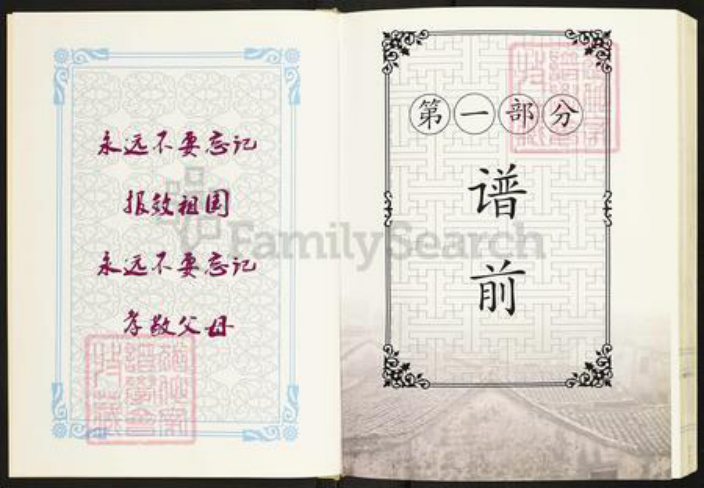 永远不要忘记
报效祖国
永远不要忘记
孝敬父母
第一部分
谱前
FamilySearch